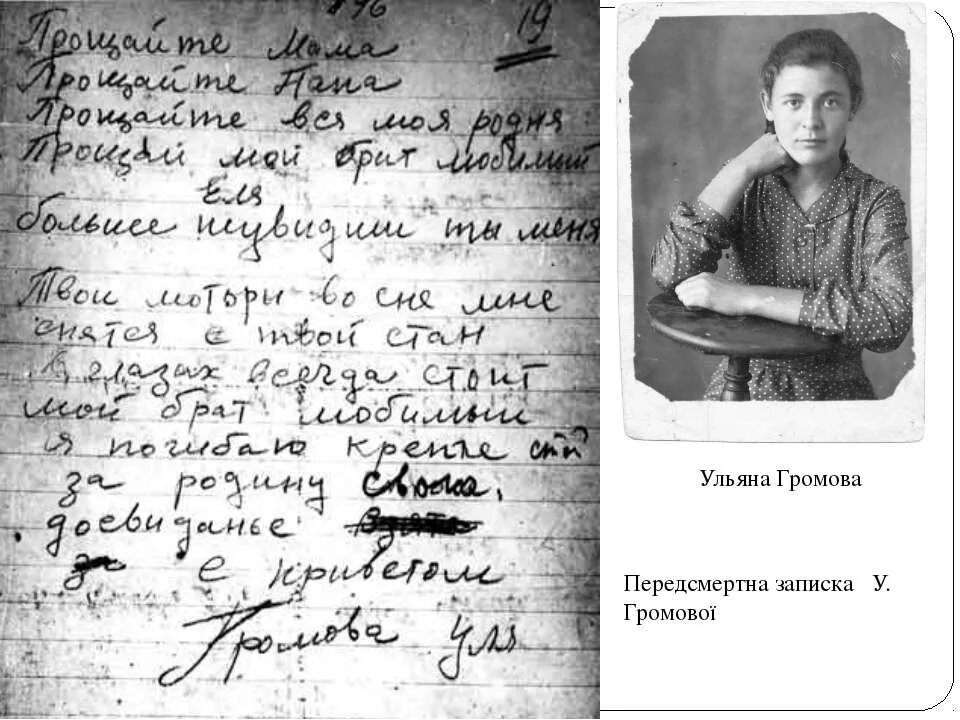 196
19
Прощайте Мама
Прощайте Папа
Прощайте вся моя родня
Прощай мой брат любимый
Еля
больше неувидиш ты меня
Твои моторы во сне мне
снятся е твой стан
В глазах всегда стоит
мой брат любимый
я погибаю крепче стой
за родину свою,
досвиданье
за
с приветом
Громова Уля
Ульяна Громова
Передсмертна записка У.
Громової